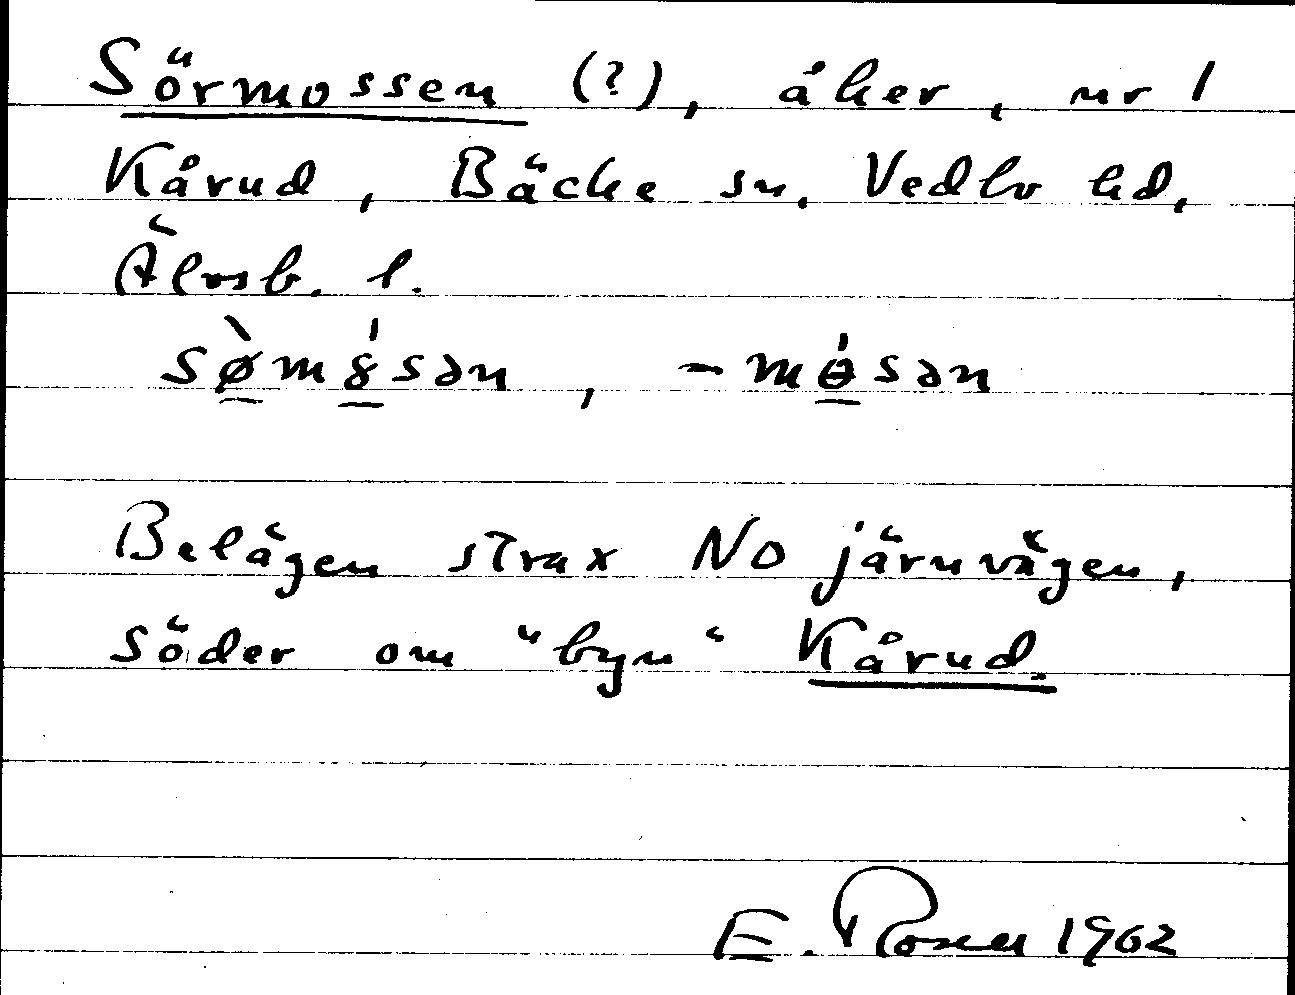 Sörmossen (?), åker, nr 1
Kårud, Bäcke sn. Vedbo hd,
Älvsb. l.
sø̀mȣ́sən, -mɵ́sən
Belägen strax NO järnvägen,
söder om "byn" Kårud.
E. Rosen 1962